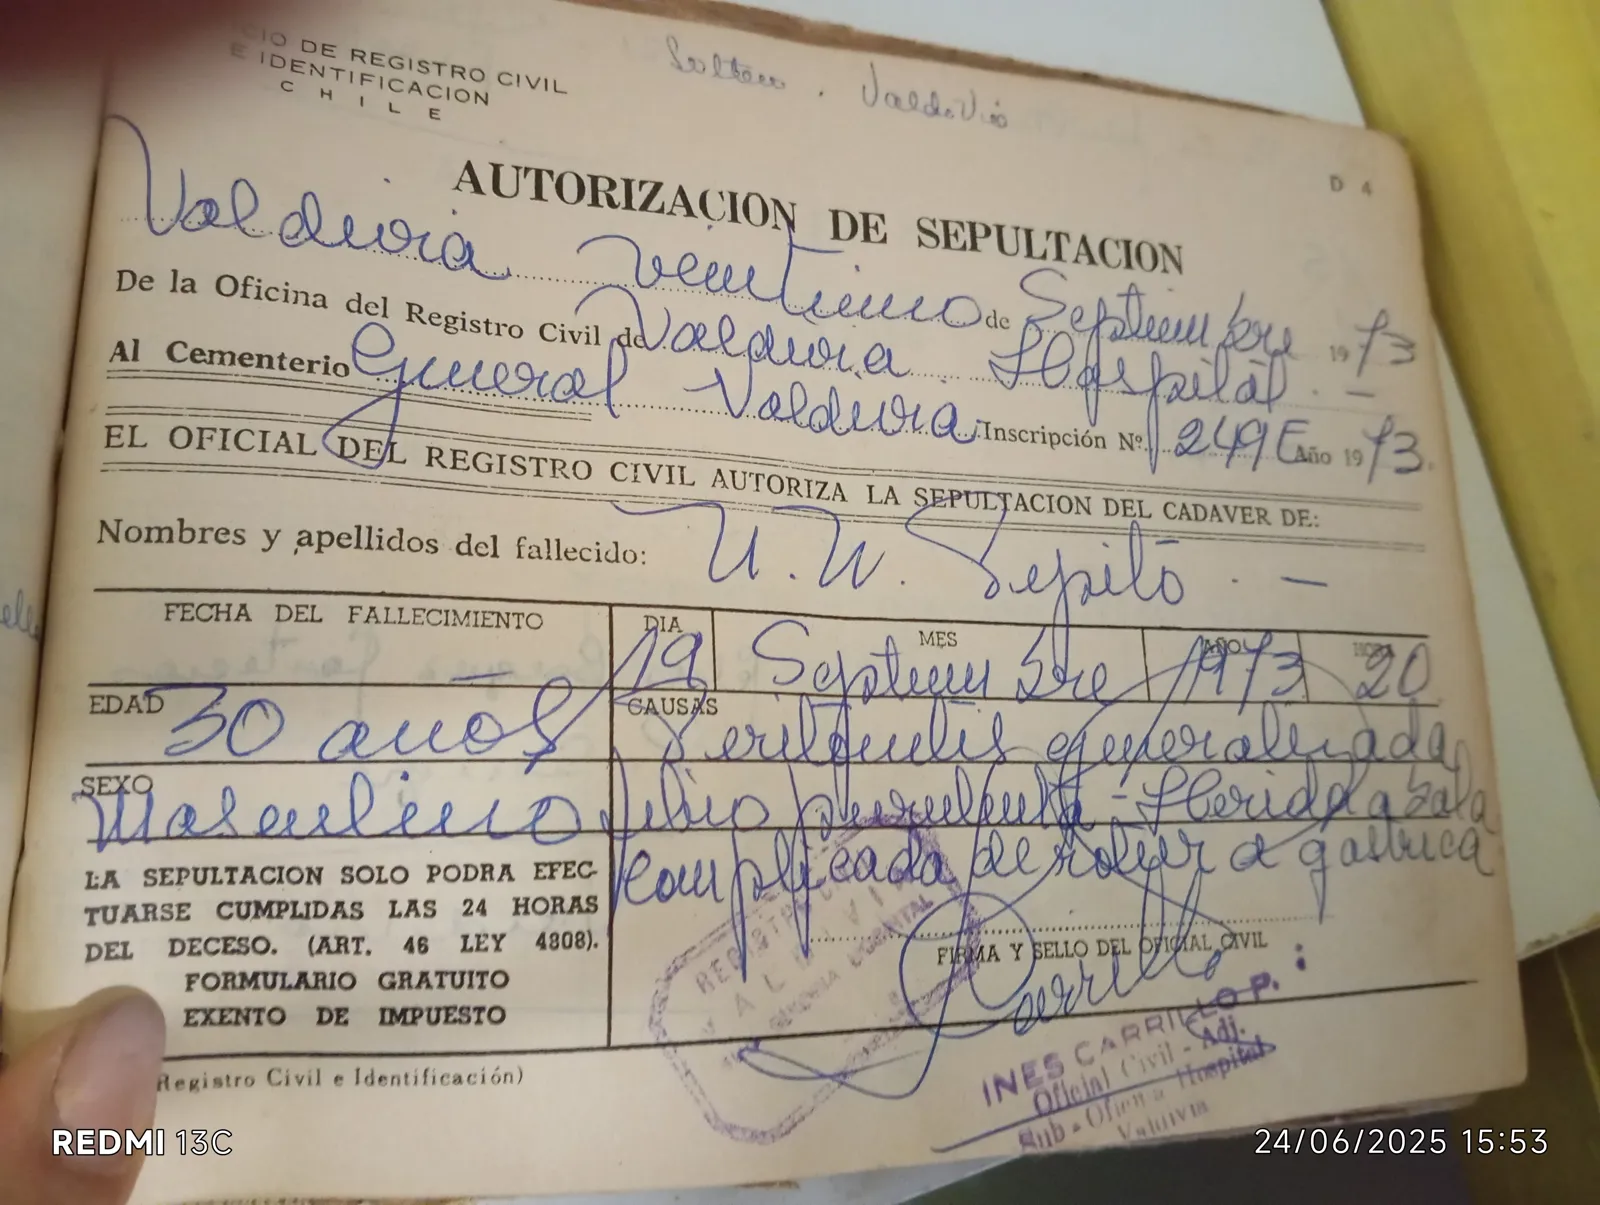 CIO DE REGISTRO CIVIL
E IDENTIFICACION
CHILE
Soltero. Valdivia
D 4
AUTORIZACION DE SEPULTACION
Valdivia veintiuno de Septiembre 1973
De la Oficina del Registro Civil de Valdivia Hospital. -
Al Cementerio General Valdivia. Inscripción Nº 249E Año 1973.
EL OFICIAL DEL REGISTRO CIVIL AUTORIZA LA SEPULTACION DEL CADAVER DE:
Nombres y apellidos del fallecido: N. N. Pepito. -
FECHA DEL FALLECIMIENTO DIA 19 MES Septiembre AÑO 1973 HORA 20
EDAD 30 años CAUSAS Peritonitis generalizada
SEXO Masculino fibrino purulenta - Herida a bala
complicada de a gástrica
LA SEPULTACION SOLO PODRA EFEC-
TUARSE CUMPLIDAS LAS 24 HORAS
DEL DECESO. (ART. 46 LEY 4808).
FORMULARIO GRATUITO
EXENTO DE IMPUESTO
FIRMA Y SELLO DEL OFICIAL CIVIL
Carrillo
REGISTRO
VALDIVIA
INES CARRILLO P.
Oficial Civil - Adj.
Sub-Oficina Hospital
Valdivia
Registro Civil e Identificación)
REDMI 13C
24/06/2025 15:53